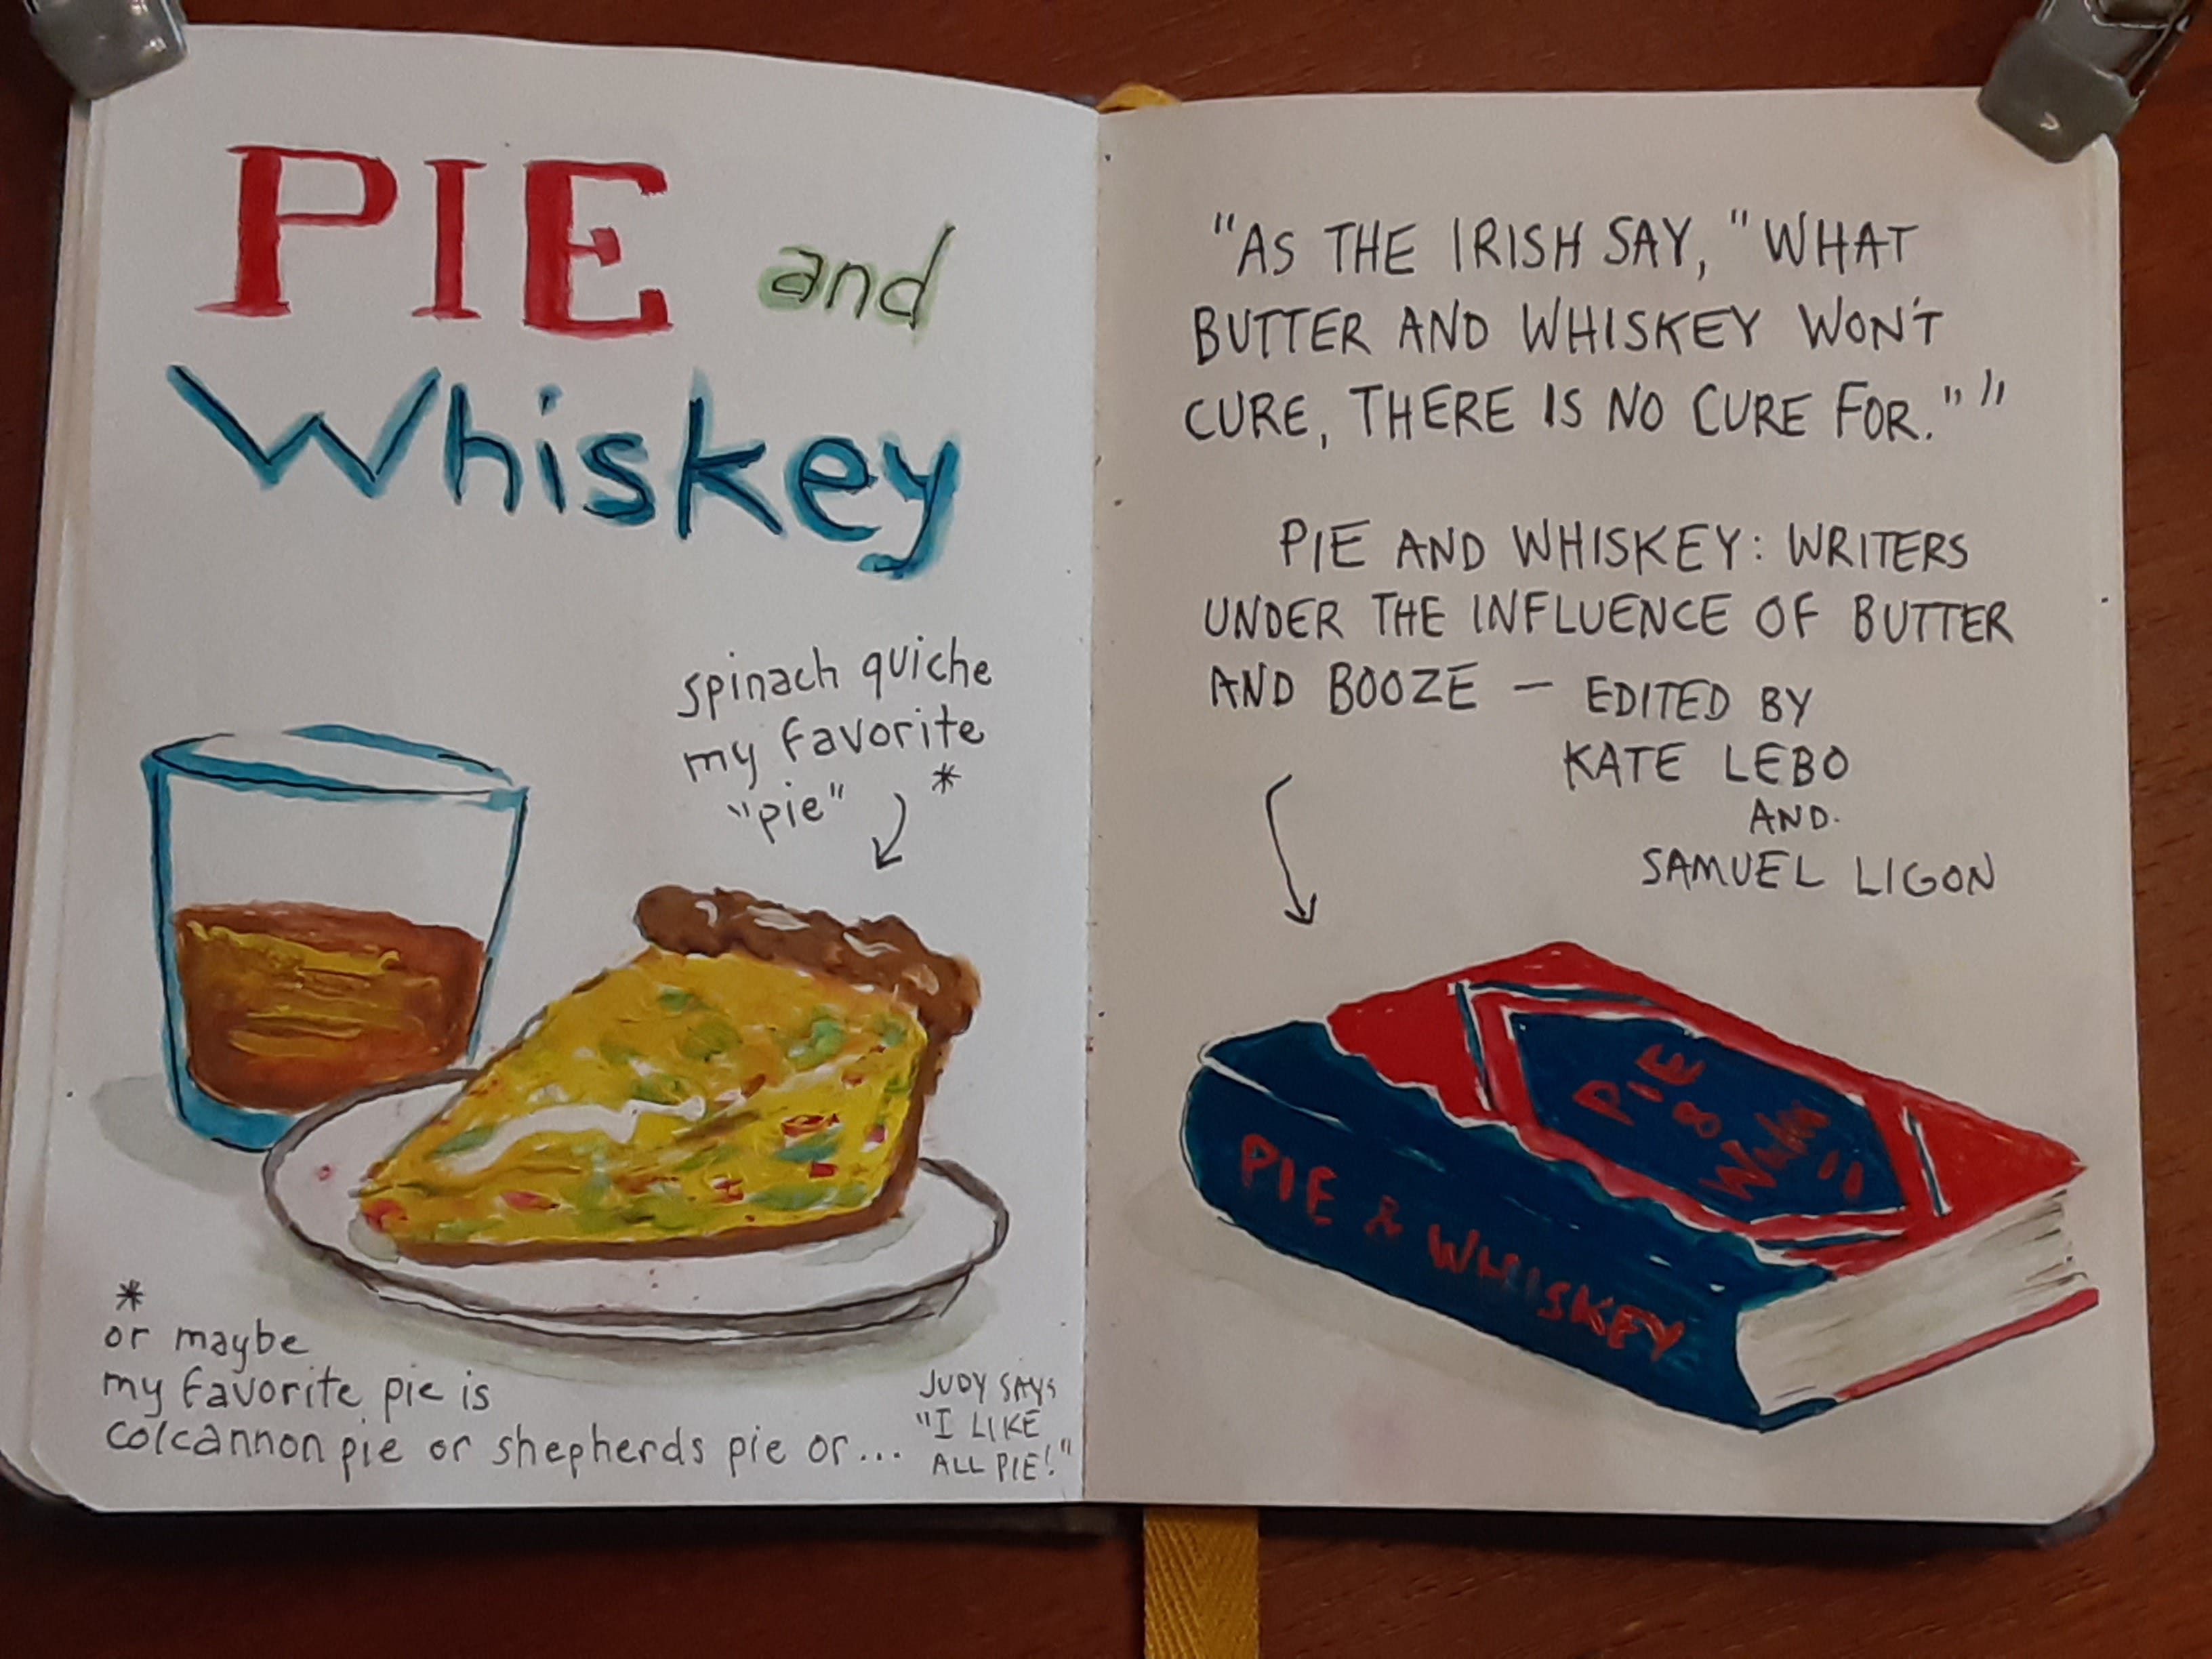 PIE and
Whiskey
spinach quiche
my favorite
"pie" *
*
or maybe
my favorite pie is
colcannon pie or shepherds pie or...
JUDY SAYS
"I LIKE
ALL PIE!"
"AS THE IRISH SAY, "WHAT
BUTTER AND WHISKEY WON'T
CURE, THERE IS NO CURE FOR.""
PIE AND WHISKEY: WRITERS
UNDER THE INFLUENCE OF BUTTER
AND BOOZE — EDITED BY
KATE LEBO
AND
SAMUEL LIGON
PIE
&
PIE & WHISKEY